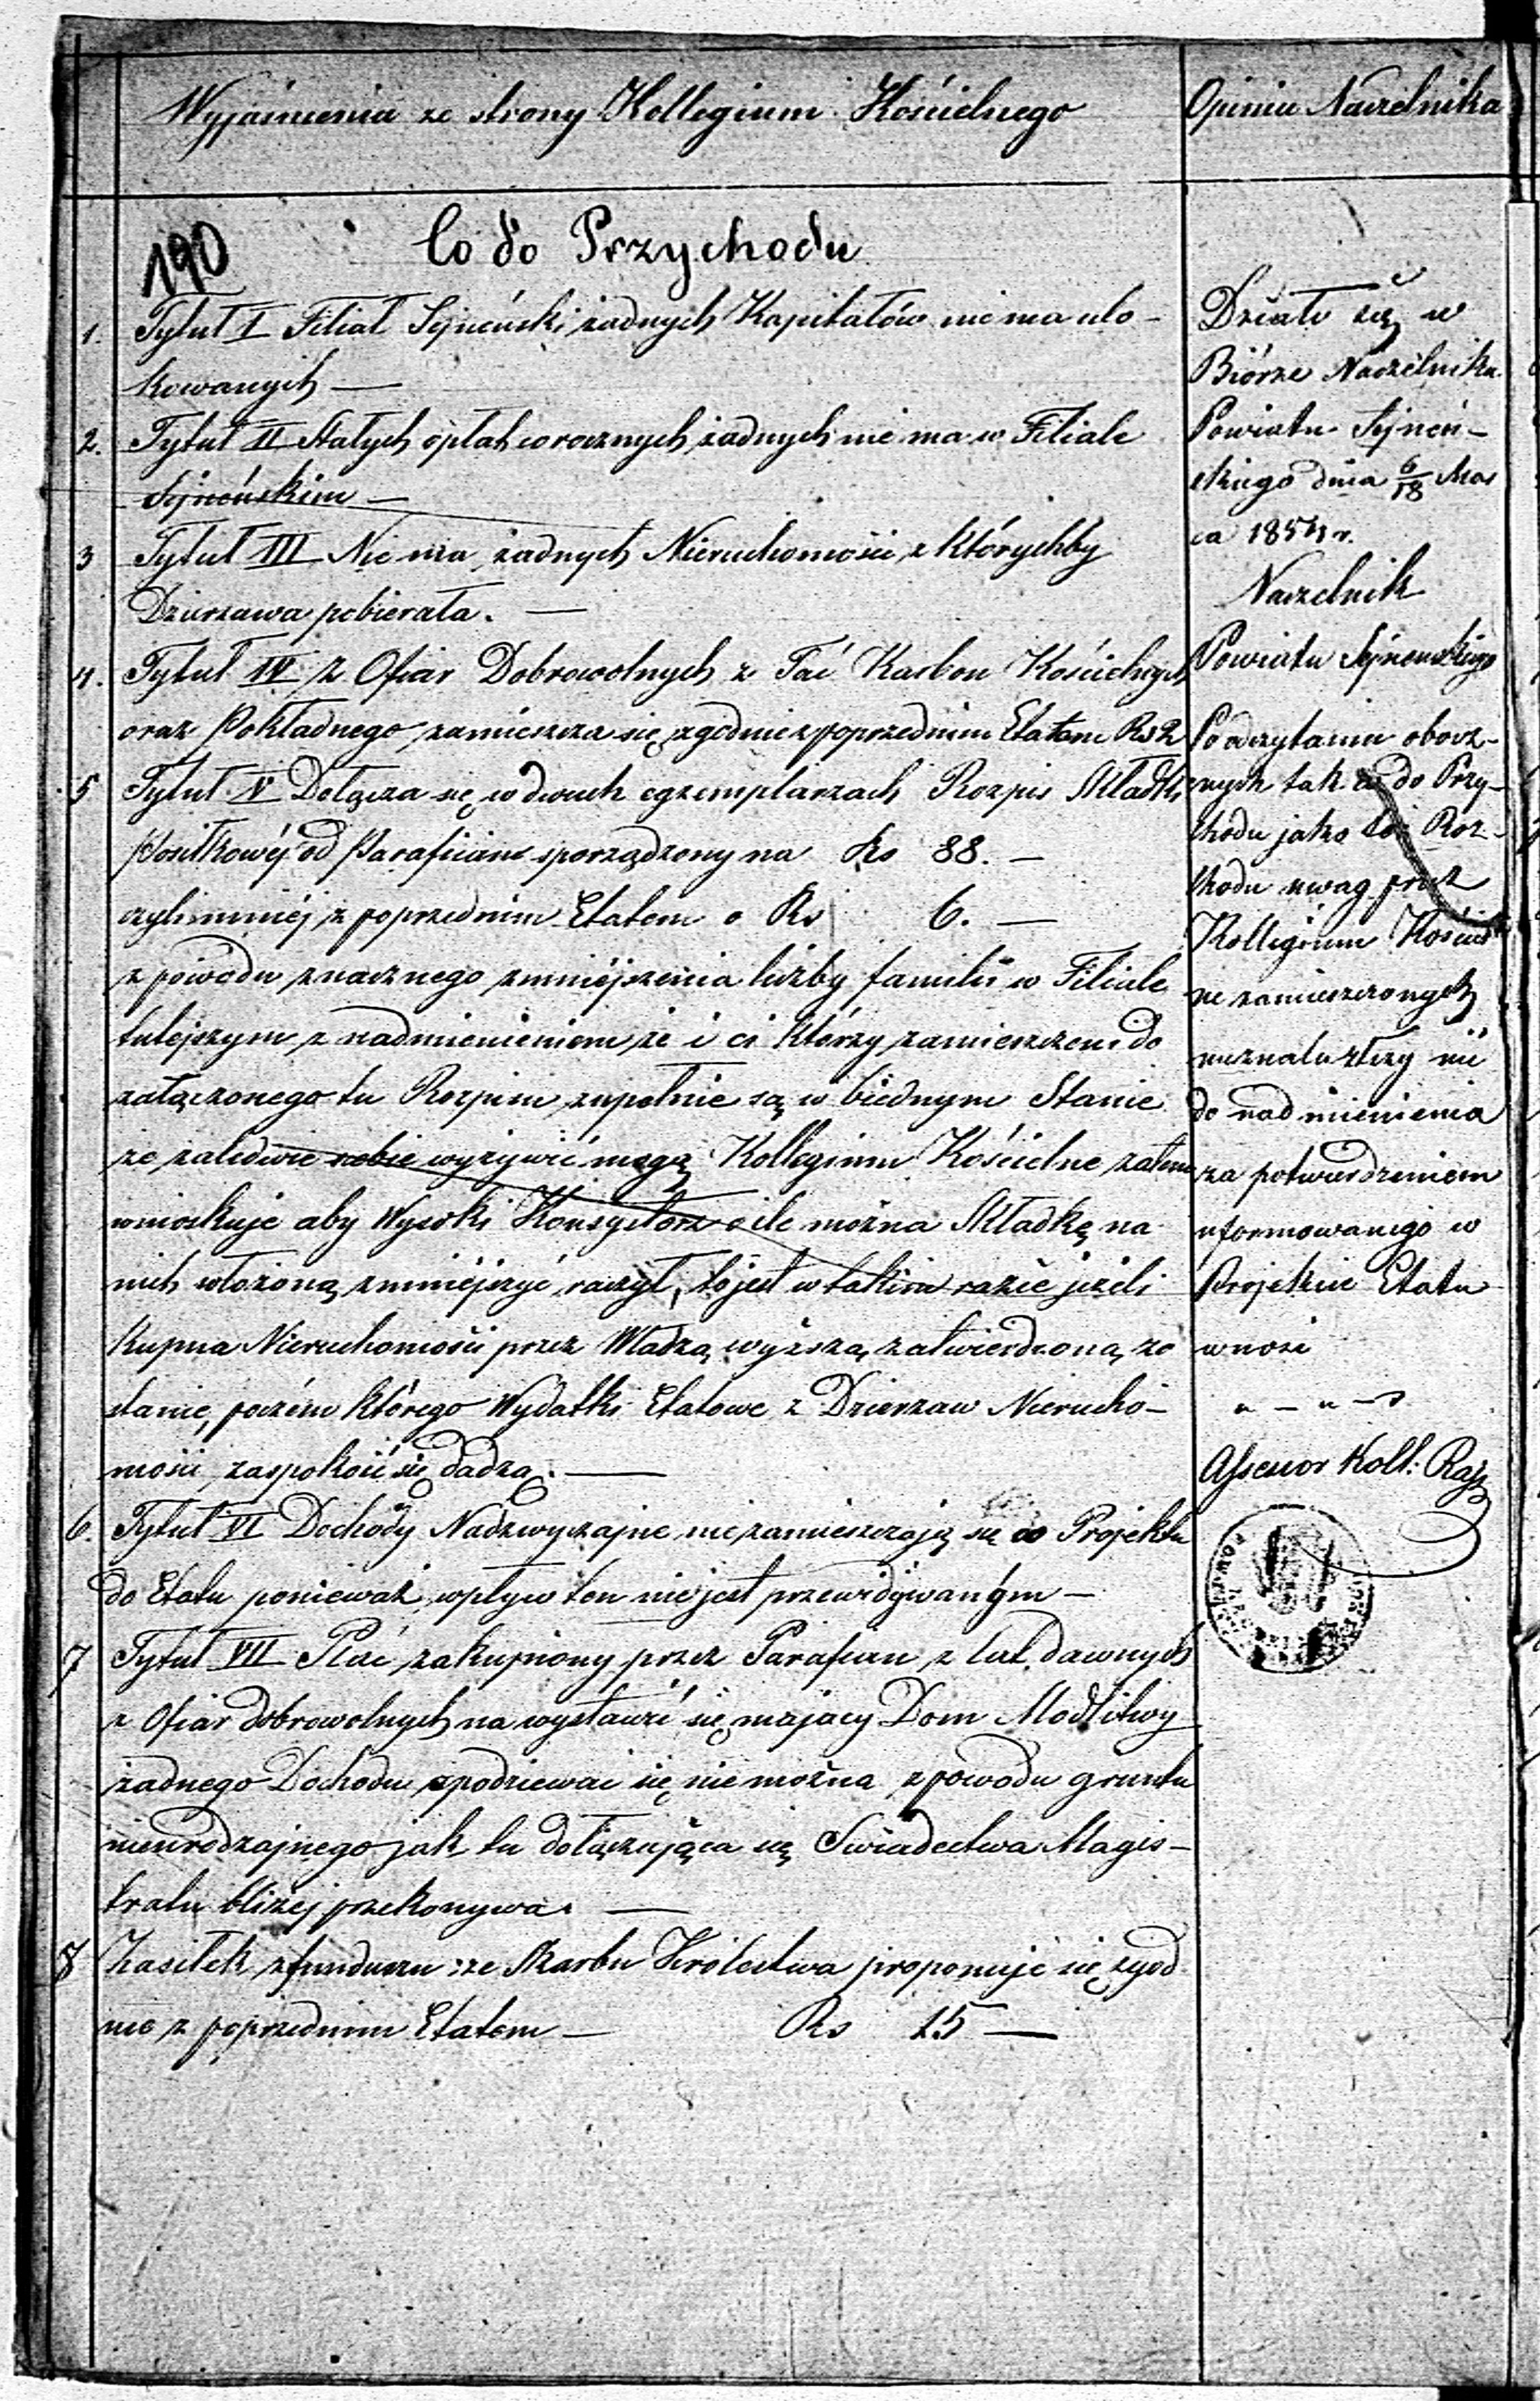 Wyjaśnienia ze strony Kollegium Kościelnego
190
Co do Przychodu
1. Tytuł I Filiał Sejneński żadnych Kapitałów nie ma ulo-
kowanych —
2. Tytuł II Stałych opłat corocznych żadnych nie ma w Filiale
Sejneńskim —
3 Tytuł III Nie ma żadnych Nieruchomości z którychby
Dzierżawa pobierała. —
4. Tytuł IV z Ofiar Dobrowolnych z Tac Karbon Kościelnych
oraz Pokładnego, zamieszcza się zgodnie z poprzednim Etatem Rs 2
5 Tytuł V Dołącza się w dwuch egzemplarzach Rozpis Składki
Posiłkowéj od Parafian sporządzony na Rs 88. —
czyli mniéj z poprzednim Etatem o Rs 6. —
z powodu znacznego zmniéjszenia liczby familii w Filiale
tutejszym z nadmienieniem że i ci którzy zamieszczeni do
załączonego tu Rozpisu zupełnie są w biednym Stanie
że zaledwie siebie wyżywić mogą Kollegium Kościelne zatem
wnioskuje aby Wysoki Konsystorz o ile można Składkę na
nich włożoną zmniéjszyć raczył, to jest w takim razie jeżeli
Kupna Nieruchomości przez Władzą wyższą zatwierdzoną zo
stanie, poczém którego Wydatki Etatowe z Dzierżaw Nierucho-
mości zaspokoić się dadzą. —
6. Tytuł VI Dochody Nadzwyczajne nie zamieszczają się do Projektu
do Etatu ponieważ wpływ ten nie jest przewidywaným —
7 Tytuł VII Plac zakupiony przez Parafian z lat dawnych
z Ofiar dobrowolnych na wystawić się mający Dom Modlitwy
żadnego Dochodu spodziewać się nie można z powodu gruntu
nieurodzajnego jak tu dołączająca się Swiadectwa Magis-
tratu bliżej przekonywa. —
8 Zasiłek z funduszu ze Skarbu Królestwa proponuje się zgod
nie z poprzednim Etatem — Rs 15 —
Opinia Naczelnika
Działo się w
Biórze Naczelnika
Powiatu Sejneń-
skiego dnia 6/18 Mar
ca 1854 r.
Naczelnik
Powiatu Sejneńskiego
Po odczytaniu obocz-
nych tak co do Przy-
chodu jako też Roz-
chodu uwag przez
Kollegium Kościel
ne zamieszczonych
nieznalazłszy nic
do nadmienienia
za potwierdzeniem
uformowanego w
Projekcie Etatu
wnosi
Assessor Koll: